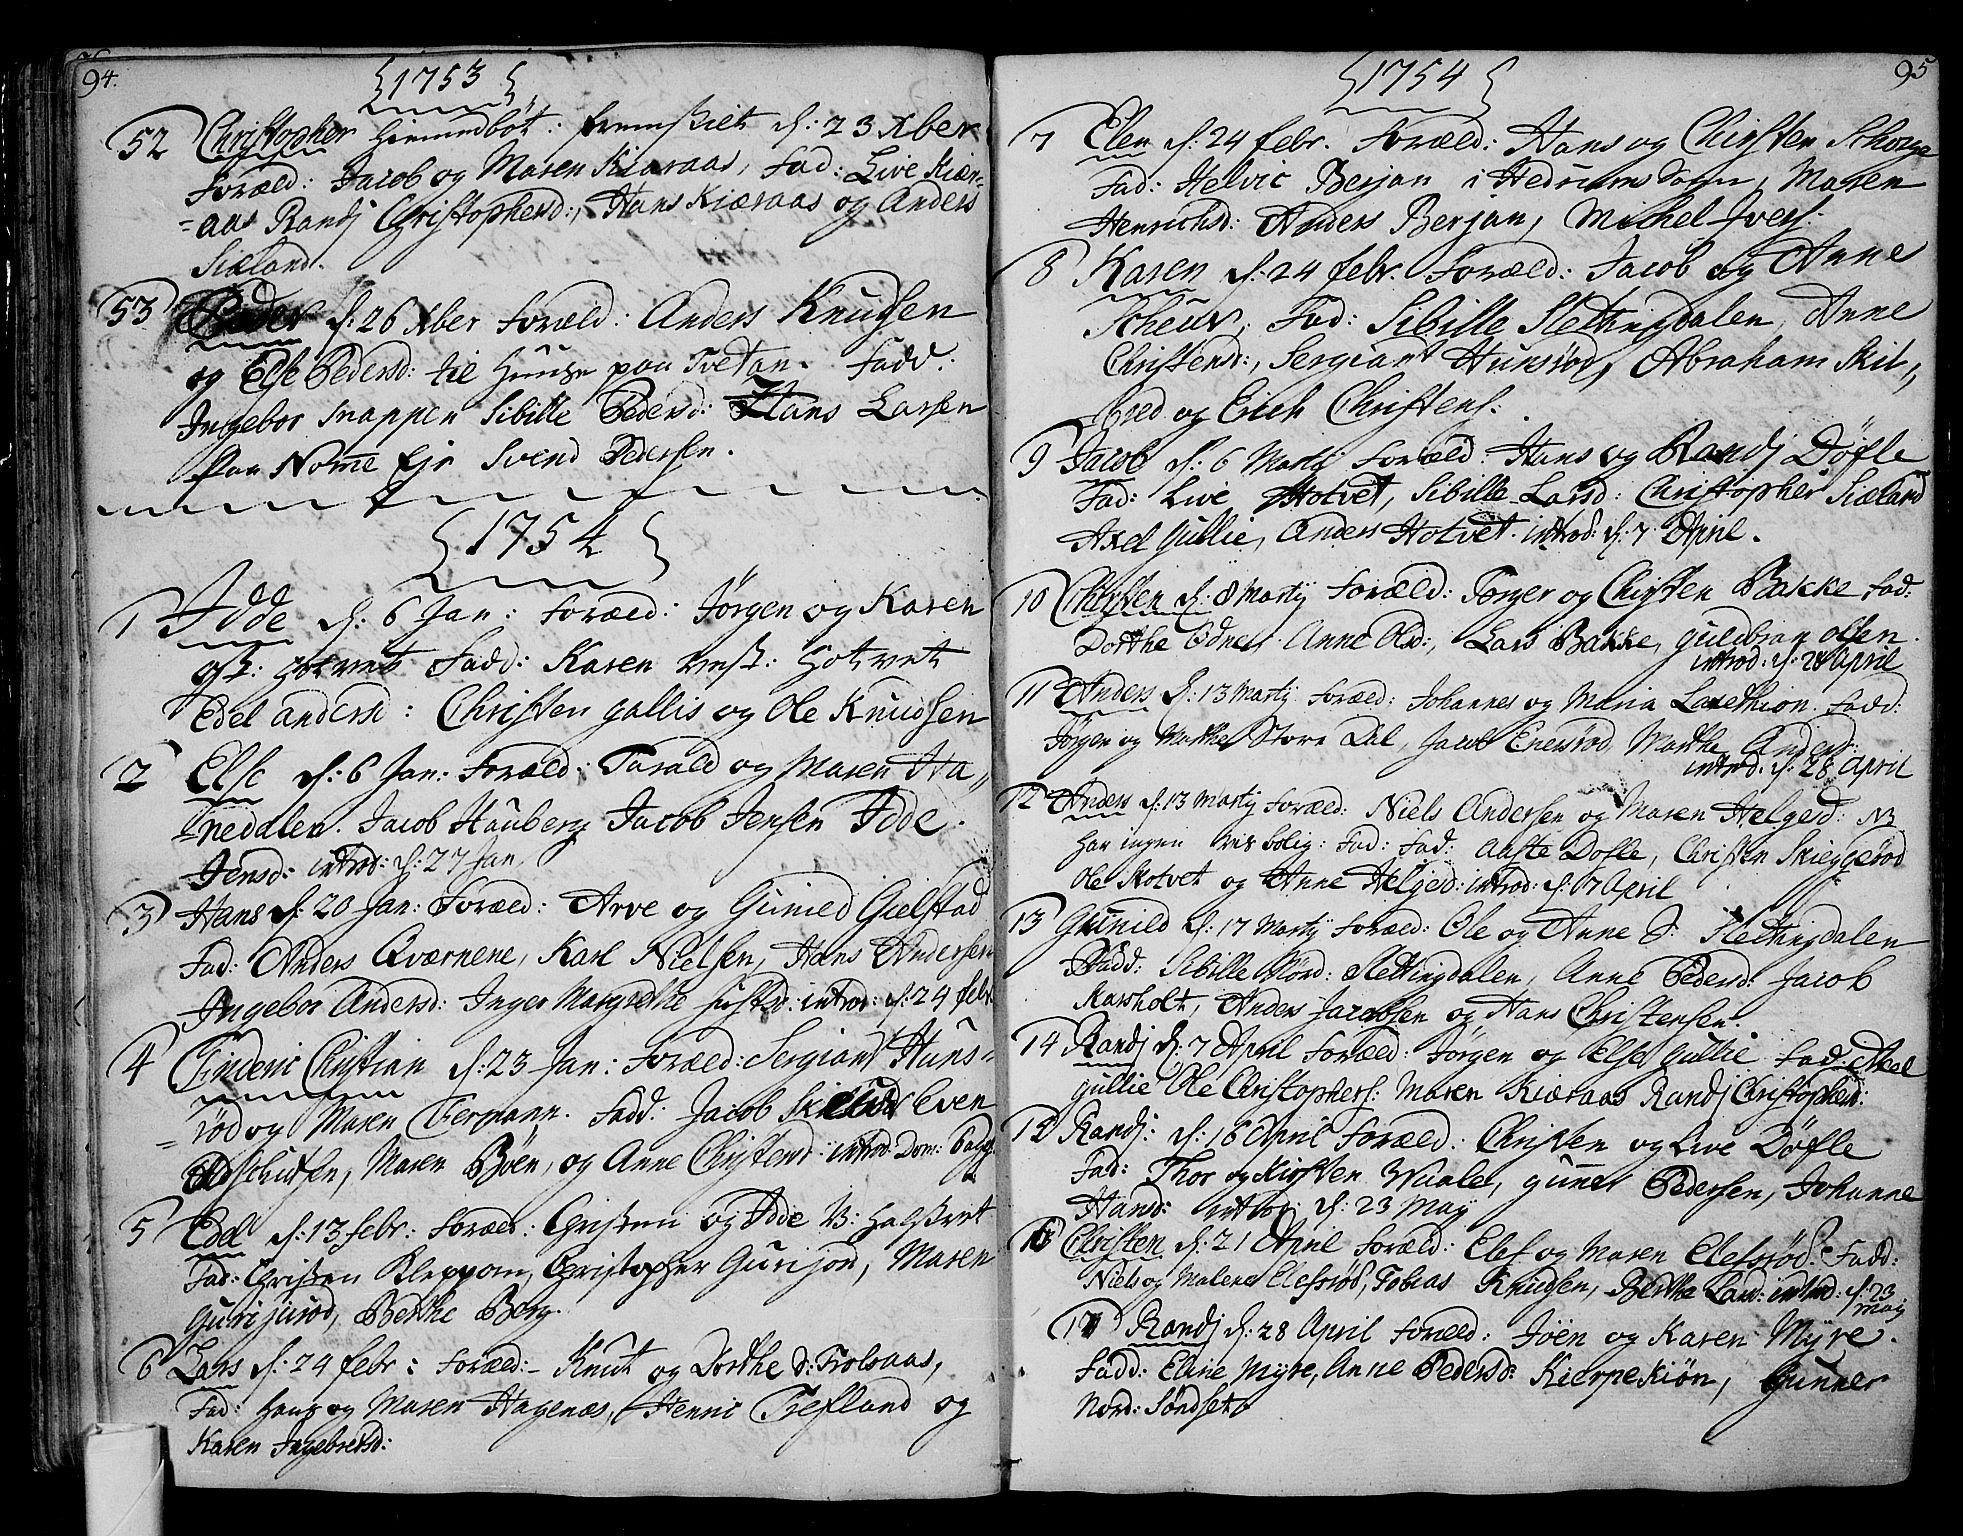 94.
{1753}
52 Christopher hiemmedöbt: fremstilt d: 23 Xber
Foræld: Jacob og Maren Kiæraas, Fad: Live Kiær-
=aas Randj Christophersd:, Hans Kiæraas og Anders
Siæland.
53 Peder d: 26 Xber Foræld: Anders Knudsen
og Else Pedersd: til Huuse paa Tvetan. Fadd:
Ingebor Snappen Sibille Pedersd: Hans Larsen
paa Nomme Eje Svend Pedersen.
{1754}
1 Idde d: 6 Jan: Foræld: Jörgen og Karen
öst: Hotvet Fadd: Karen vest: Hotvet
Edel Andersd: Christen Gallis og Ole Knudsen
2 Else d: 6 Jan: Foræld: Tarald og Maren Ha-
=nedalen. Jacob Hauberg Jacob Jensen Idde
Jensd: introd: d: 27 Jan
3 Hans d: 20 Jan: Foræld: Arve og Gunild Gielstad
Fad: Anders Qværnene, Karl Nielsen, Hans Andersen
Ingebor Andersd: Inger Margrethe introd: d: 24 febr
4 Frideric Christian d: 23 Jan: Foræld: Sergiant Huns-
=rød og Maren Fermann. Fadd: Jacob Even
Maren Böen, og Anne Christensd: introd Dom:
5 Edel d: 13 febr: Foræld: Christen og Idde V: Holtvet
Fad: Christen Kleppan, Christopher Gurijord, Maren
Gurijurod, Berthe Borg.
6 Lars d: 24 febr: Foræld:- Knut og Dorthe S: Trolsaas,
Fad: Hans og Maren Hagenæs, Henric Trefland og
Karen Ingebretsd:
95
{1754}
7 Elen d: 24 febr. Foræld: Hans og Christen Skorge
Fad: Helvic Berjan i Hedrums Sogn, Maren
Henrichsd: Anders Berjan, Michel Ivers:
8 Karen d: 24 febr. Foræld: Jacob og Anne
Skeur, Fad: Sibille Slettingdalen, Anne
Christensd:, Sergiant Hunsrød, Abraham Skil-
=bred og Erich Christens:.
9 Jacob d: 6 Martij Foræld: Hans og Randj Döfle
Fad: Live Hotvet, Sibille Larsd: Christopher Siæland
Axel Gullie, Anders Hotvet. introd: d: 7 April.
10 Christen d: 8 Martij Foræld: Torger og Christen Bakke Fad:
Dorthe Anne Olsd:, Lars Bakke, Guldbran Olsen
introd: d: 28 April
11 Anders d: 13 Martij Foræld: Johannes og Maria Lanethion. Fadd:
Jörgen og Marthe Store Dal, Jacob Enersrød, Marthe Andersd:
introd: d: 28 April
12 Anders d: 13 Martij Foræld: Niels Andersen og Maren Helgesd: NB
har ingen vis bolig: Fad: Fad: Aaste Dofle, Christen Skieggerød
Ole Skotvet og Anne Helgesd: introd: d: 7 April
13 Gunild d: 17 Martij Foræld: Ole og Anne S: Slettingdalen
Fadd: Sibille Nörd: Slettingdalen, Anne Pedersd: Jacob
Karsholt, Anders Jacobsen og Hans Christensen.
14 Randj d: 7 April Foræld: Jörgen og Else Gullie Fad: Axel
Gullie Ole Christophers: Maren Kiæraas Randj Christophersd:
15 Randj: d: 16 April Foræld: Christen og Live Döfle
Fad: Thor og Kirsten Waale, Gunner Pedersen, Johanne
Hansd: introd: d: 23 May
16 Christen d: 21 April Foræld: Elef og Maren Elefsrød: Fadd:
Niels og Malene Elefsrød, Tobias Knudsen, Berthe Land: introd: d: 23
may
17 Randj d: 28 April Foræld: Jöen og Karen Myre.
Fadd: Eline Myre, Anne Pedersd: Kierpekiön, Gunner
Nord: Söndset